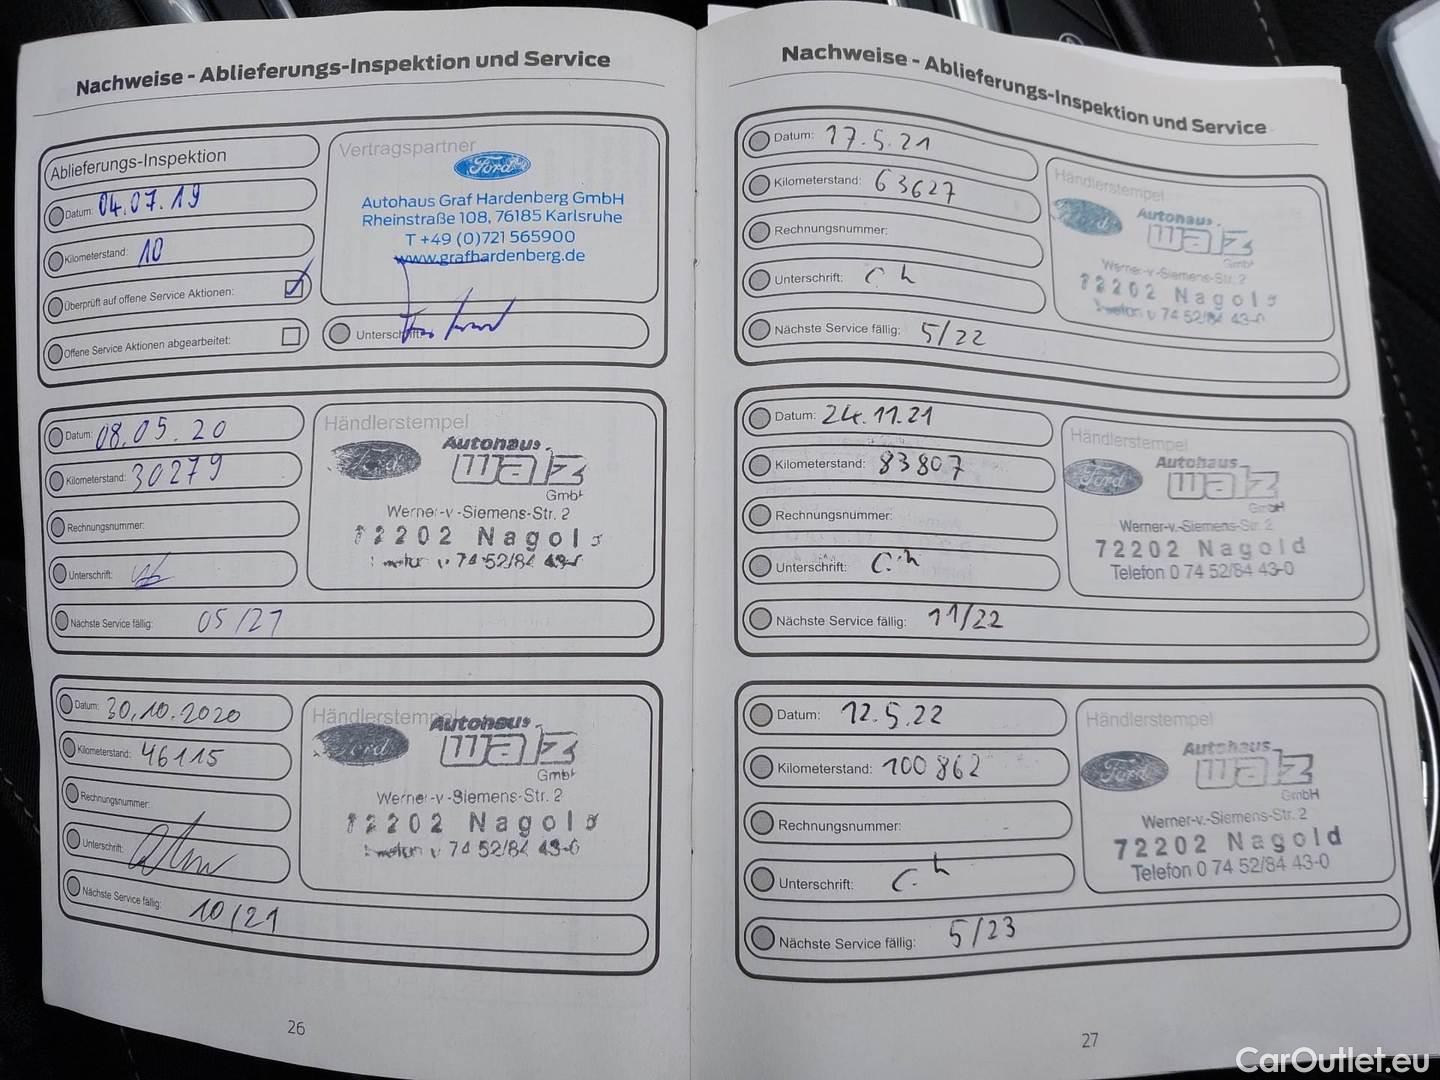 Nachweise - Ablieferungs-Inspektion und Service
Ablieferungs-Inspektion
Datum: 04.07.19
Kilometerstand: 10
Überprüft auf offene Service Aktionen:
Offene Service Aktionen abgearbeitet:
Vertragspartner
Ford
Autohaus Graf Hardenberg GmbH
Rheinstraße 108, 76185 Karlsruhe
T +49 (0)721 565900
www.grafhardenberg.de
Unterschrift:
Datum: 08.05.20
Kilometerstand: 30279
Rechnungsnummer:
Unterschrift:
Nächste Service fällig: 05/21
Händlerstempel
Ford
Autohaus
walz
GmbH
Werner-v-Siemens-Str. 2
72202 Nagold
74 52/84 43-0
Datum: 30.10.2020
Kilometerstand: 46115
Rechnungsnummer:
Unterschrift:
Nächste Service fällig: 10/21
Händlerstempel
Ford
Autohaus
walz
GmbH
Werner-v-Siemens-Str. 2
72202 Nagold
74 52/84 43-0
26
Nachweise - Ablieferungs-Inspektion und Service
Datum: 17.5.21
Kilometerstand: 63627
Rechnungsnummer:
Unterschrift: C.h
Nächste Service fällig: 5/22
Händlerstempel
Ford
Autohaus
walz
GmbH
Werner-v-Siemens-Str. 2
72202 Nagold
74 52/84 43-0
Datum: 24.11.21
Kilometerstand: 83807
Rechnungsnummer:
Unterschrift: C.h
Nächste Service fällig: 11/22
Händlerstempel
Ford
Autohaus
walz
GmbH
Werner-v.-Siemens-Str. 2
72202 Nagold
Telefon 0 74 52/84 43-0
Datum: 12.5.22
Kilometerstand: 100862
Rechnungsnummer:
Unterschrift: C.h
Nächste Service fällig: 5/23
Händlerstempel
Ford
Autohaus
walz
GmbH
Werner-v.-Siemens-Str. 2
72202 Nagold
Telefon 0 74 52/84 43-0
27
CarOutlet.eu